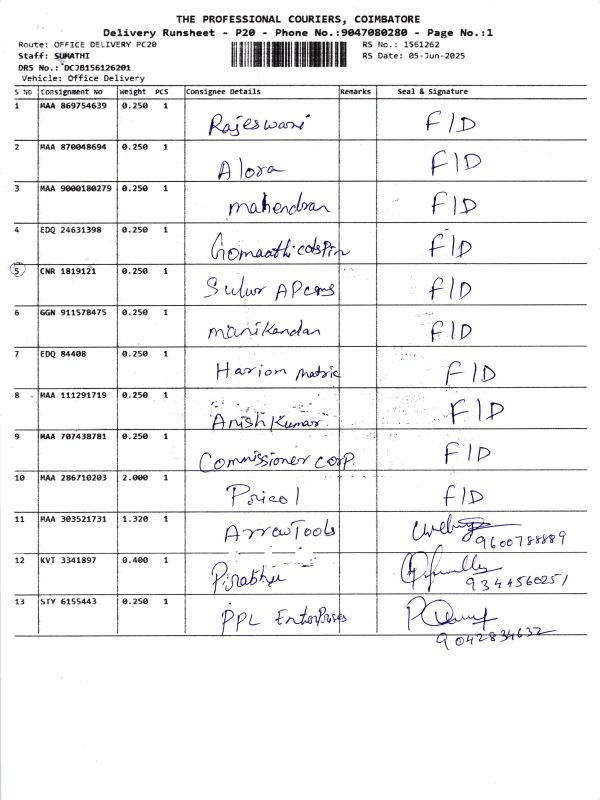 THE PROFESSIONAL COURIERS, COIMBATORE
Delivery Runsheet - P20 - Phone No.:9047080280 - Page No.:1
Route: OFFICE DELIVERY PC20 RS No.: 1561262
Staff: SUMATHI RS Date: 05-Jun-2025
DRS No.: DCJB156126201
Vehicle: Office Delivery
S No Consignment No Weight PCS Consignee Details Remarks Seal & Signature
1 MAA 869754639 0.250 1 Rajeswari F/D
2 MAA 870048694 0.250 1 Alora F/D
3 MAA 9000180279 0.250 1 Mahendran F/D
4 EDQ 24631398 0.250 1 Gomaathi cotspin F/D
5 CNR 1819121 0.250 1 Sulur APcoms F/D
6 GGN 911578475 0.250 1 Manikandan F/D
7 EDQ 84408 0.250 1 Hariom Matric F/D
8 MAA 111291719 0.250 1 Anish Kumar F/D
9 MAA 707438781 0.250 1 Commissioner corp. F/D
10 MAA 286710203 2.000 1 Pricol F/D
11 MAA 303521731 1.320 1 ArrowTools
9600788889
12 KVT 3341897 0.400 1 Pirabhu
9344560251
13 STY 6155443 0.250 1 PPL Enterprises
9042834632